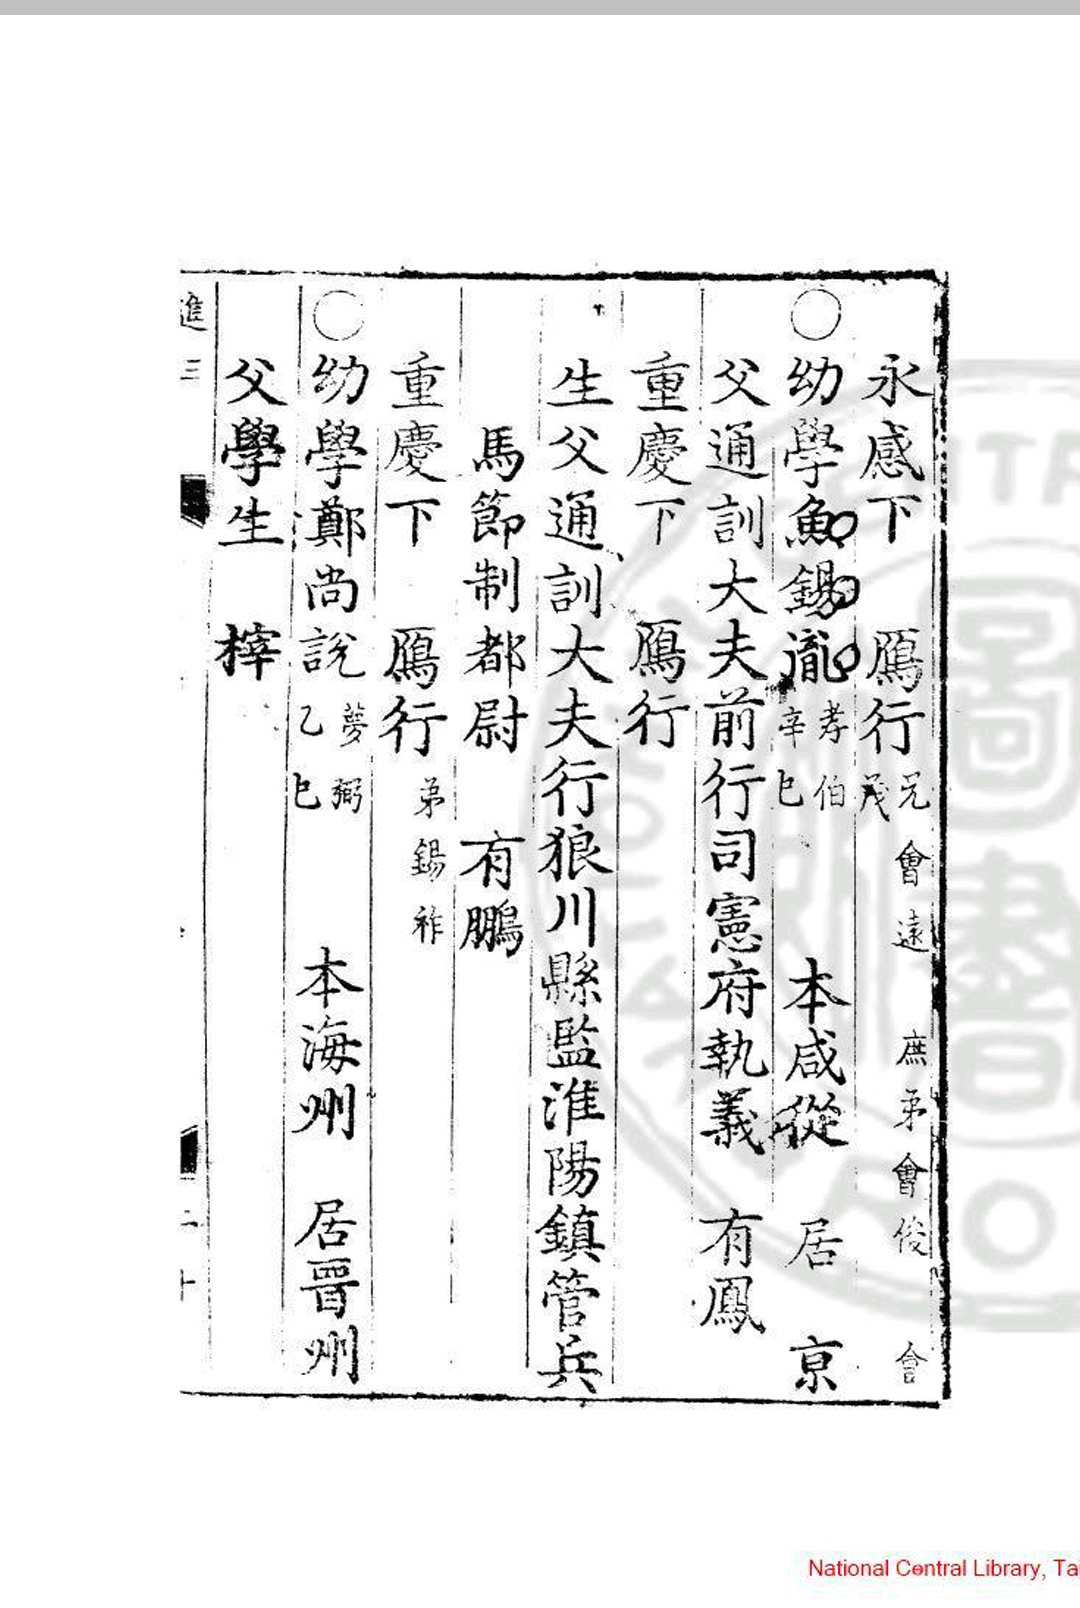 永感下　鴈行　兄會遠　庶弟會俊　會茂
○幼學魚錫胤　孝伯　辛巳　本咸從　居京
父通訓大夫前行司憲府執義　有鳳
重慶下　鴈行
生父通訓大夫行狼川縣監淮陽鎮管兵
馬節制都尉　有鵬
重慶下　鴈行　弟錫祚
○幼學鄭尚說　夢弼　乙巳　本海州　居晉州
父學生　榟
進三
二十
National Central Library, Tai